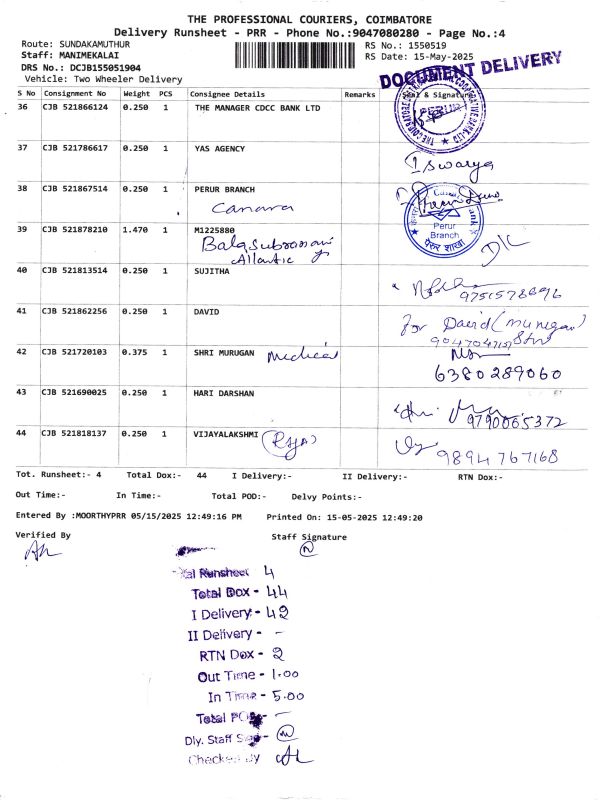 THE PROFESSIONAL COURIERS, COIMBATORE
Delivery Runsheet - PRR - Phone No.:9047080280 - Page No.:4
Route: SUNDAKAMUTHUR RS No.: 1550519
Staff: MANIMEKALAI RS Date: 15-May-2025
DRS No.: DCJB155051904
Vehicle: Two Wheeler Delivery
DOCUMENT DELIVERY
S No Consignment No Weight PCS Consignee Details Remarks & Signature
36 CJB 521866124 0.250 1 THE MANAGER CDCC BANK LTD
PERUR
37 CJB 521786617 0.250 1 YAS AGENCY
Iswarya
38 CJB 521867514 0.250 1 PERUR BRANCH
Canara
Perur
Branch
पेरूर शाखा
39 CJB 521878210 1.470 1 M1225880
Balasubramani
Atlantic
D/C
40 CJB 521813514 0.250 1 SUJITHA
9751578696
41 CJB 521862256 0.250 1 DAVID
For David (Murugan)
42 CJB 521720103 0.375 1 SHRI MURUGAN Medical
6380289060
43 CJB 521690025 0.250 1 HARI DARSHAN
9790065372
44 CJB 521818137 0.250 1 VIJAYALAKSHMI (Raja)
9894767168
Tot. Runsheet:- 4 Total Dox:- 44 I Delivery:- II Delivery:- RTN Dox:-
Out Time:- In Time:- Total POD:- Delvy Points:-
Entered By :MOORTHYPRR 05/15/2025 12:49:16 PM Printed On: 15-05-2025 12:49:20
Verified By Staff Signature
Runsheet 4
Total Dox - 44
I Delivery - 42
II Delivery - -
RTN Dox - 2
Out Time - 1.00
In Time - 5.00
Total -
Dly. Staff
Checked By